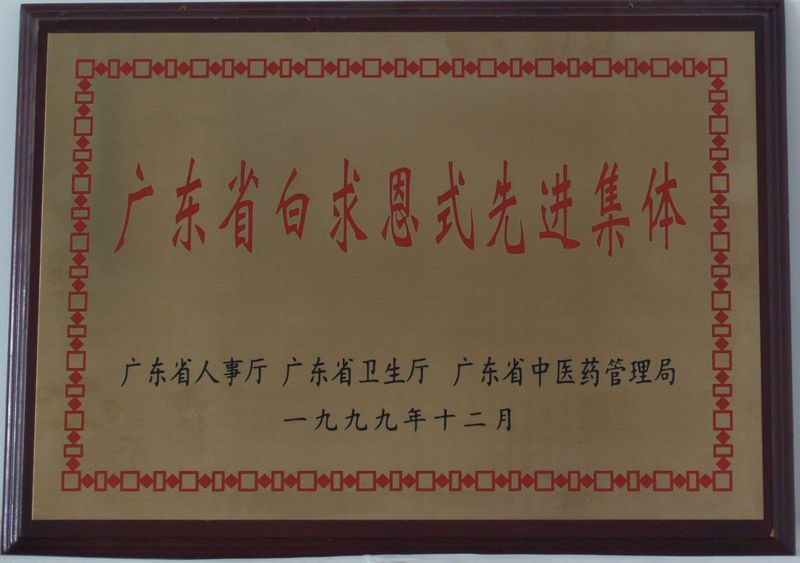 广东省白求恩式先进集体
广东省人事厅 广东省卫生厅 广东省中医药管理局
一九九九年十二月